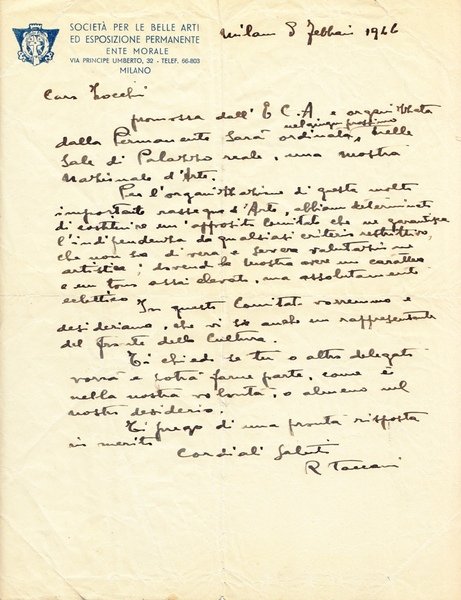 SOCIETÀ PER LE BELLE ARTI
ED ESPOSIZIONE PERMANENTE
ENTE MORALE
VIA PRINCIPE UMBERTO, 32 - TELEF. 66-803
MILANO
Milano 8 Febbraio 1946
Caro
promossa dall'E.C.A e organizzata
nel giugno prossimo
dalla Permanente sarà ordinata, nelle
Sale di Palazzo reale, una mostra
Nazionale d'Arte.
Per l'organizzazione di questa molto
importante rassegna d'Arte, abbiamo determinato
di costituire un apposito Comitato che ne garantisca
l'indipendenza da qualsiasi criterio restrittivo,
che non sia di vera e severa valutazione
artistica; dovendo la mostra avere un carattere
e un tono assai elevato, ma assolutamente
eclettico.
In questo Comitato vorremmo e
desideriamo, che vi sia anche un rappresentante
del fronte della Cultura.
Ti chiedo se tu o altro delegato
vorrà e potrà farne parte, come è
nella nostra volontà, o almeno nel
nostro desiderio.
Ti prego di una pronta risposta
in merito
Cordiali Saluti
R Taccani